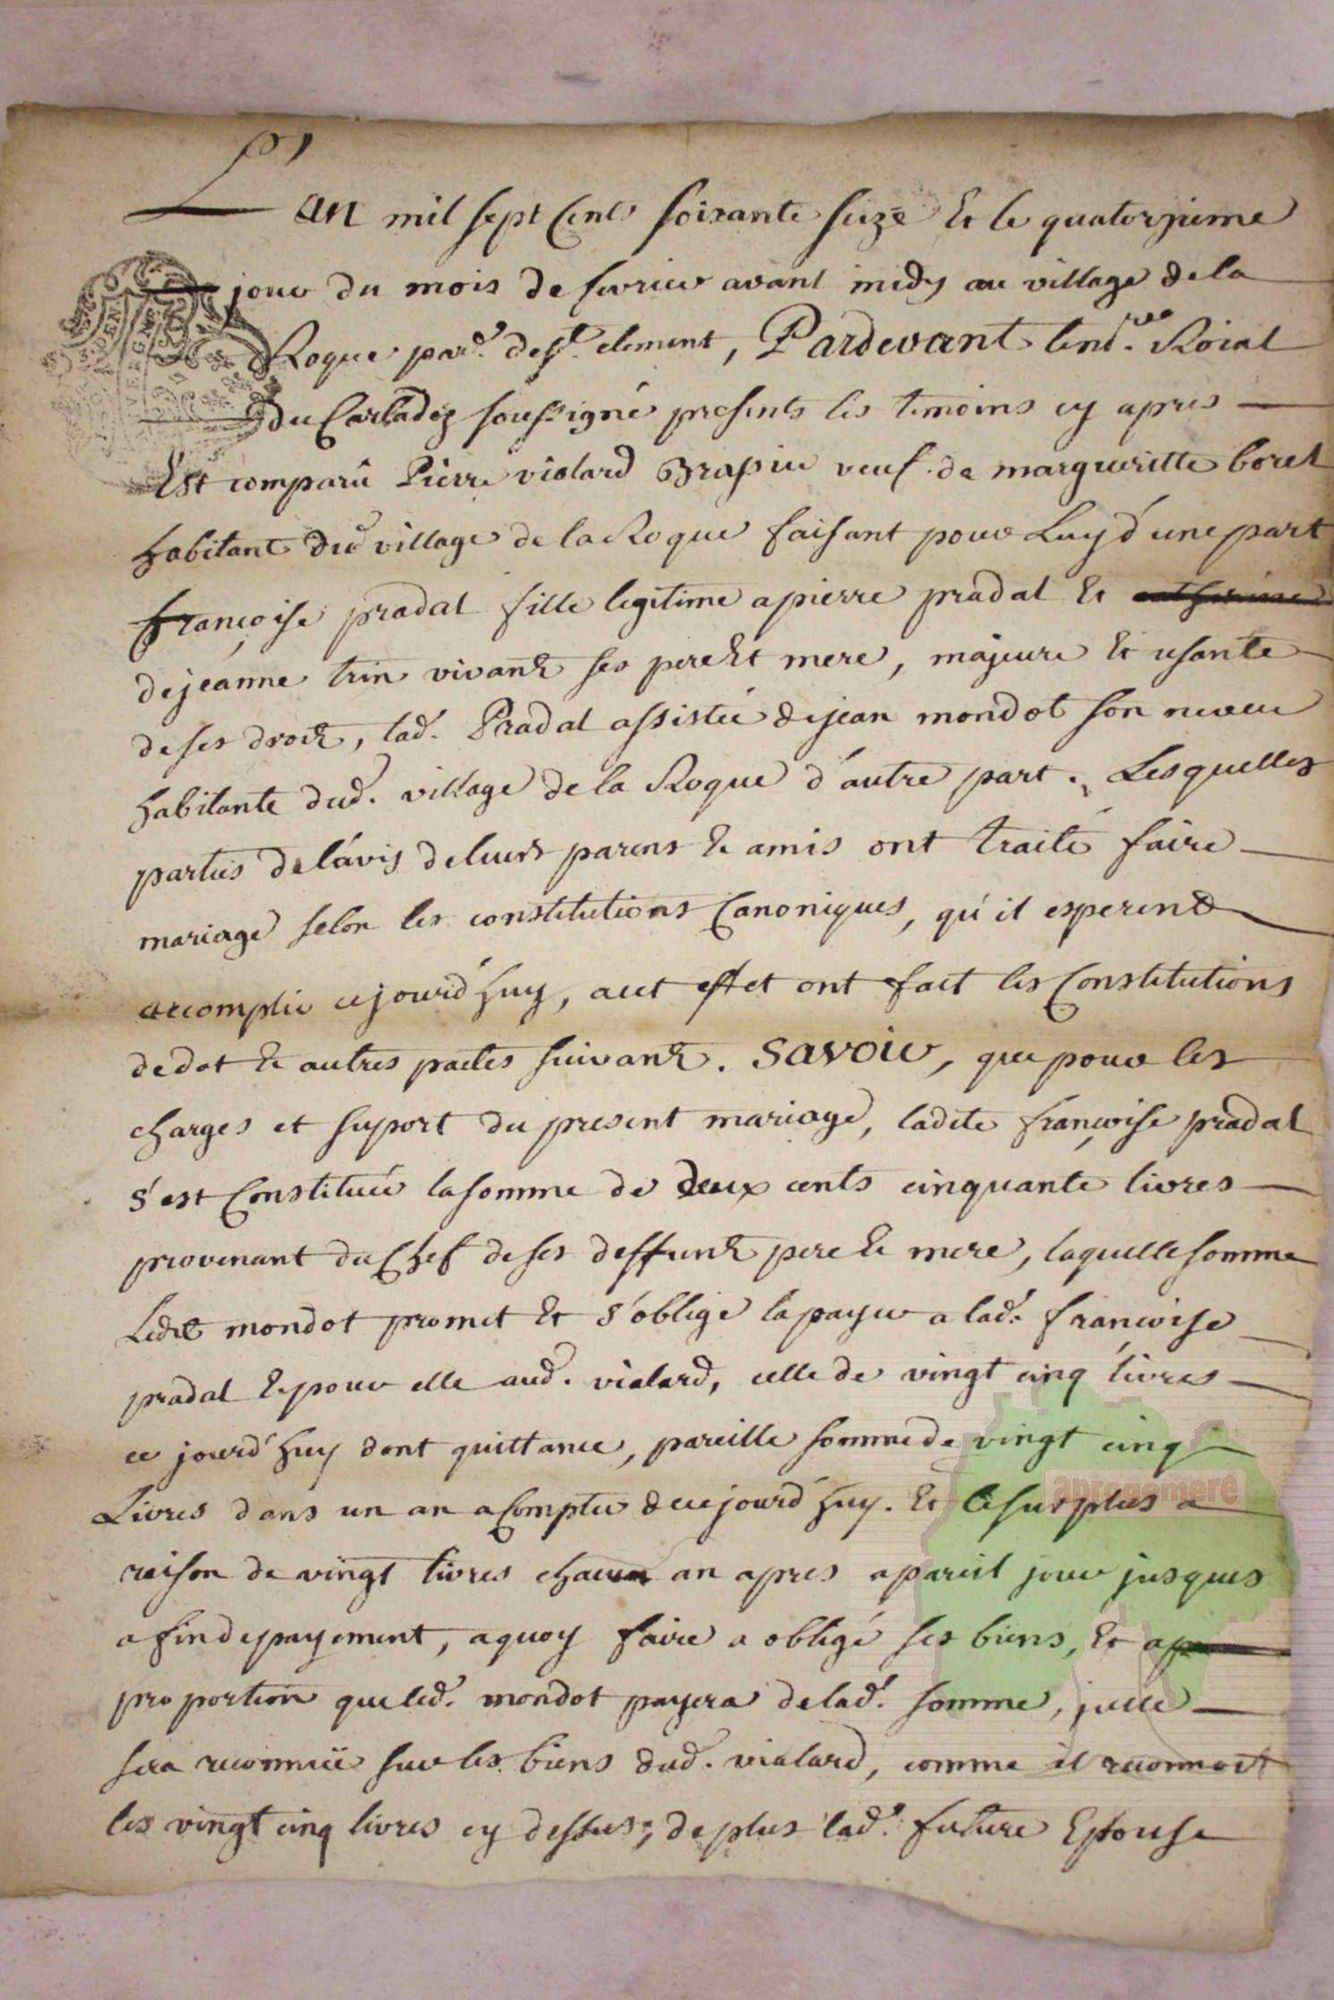 L'an mil sept cents soixante seize et le quatorzieme
jour du mois de fevrier avant midy au village de la
Roque par.e de S.t clement, Pardevant le not.re Roial
du Carladez soussigné presents les temoins cy apres
Est comparû Pierre vialard veuf de margueritte borel
habitant dud. village de la Roque faisant pour Luy d'une part
françoise pradal fille legitime a pierre pradal et catherine
de jeanne trin vivant ses pere et mere, majeure et usante
de ses droit, lad. Pradal assistée de jean mondot son neveu
habitante dud. village de la Roque d'autre part. Lesquelles
parties de l'avis de leurs parens et amis ont traité faire
mariage selon les constitutions Canoniques, qu'il esperent
accomplir cejourd'huy, acet effet ont fait les Constitutions
de dot et autres pactes suivant. savoir, que pour les
charges et suport du present mariage, ladite françoise pradal
s'est Constituée la somme de deux cents cinquante livres
provenant du Chef de ses deffunt pere et mere, laquelle somme
Ledit mondot promet et s'oblige la payer a lad. françoise
pradal et pour elle aud. vialard, celle de vingt cinq livres
ce jourd'huy dont quittance, pareille somme de vingt cinq
Livres dans un an a Compter de cejourd'huy. et le surplus a
raison de vingt livres chacun an apres a pareil jour jusques
a fin de payement, aquoy faire a obligé ses biens, et a
proportion que led. mondot payera de lad. somme, icelle
sera reconnüe sur les biens dud. vialard, comme il reconnoit
les vingt cinq livres cy dessus; de plus lad. future Epouse
aprogemere